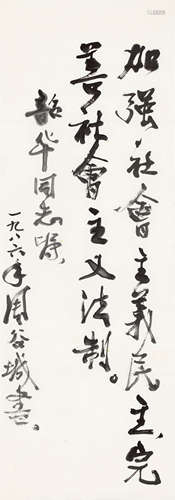 加强社會主義民主、完
善社會主义法制。
韶华同志嘱、
一九八六年周谷城书、